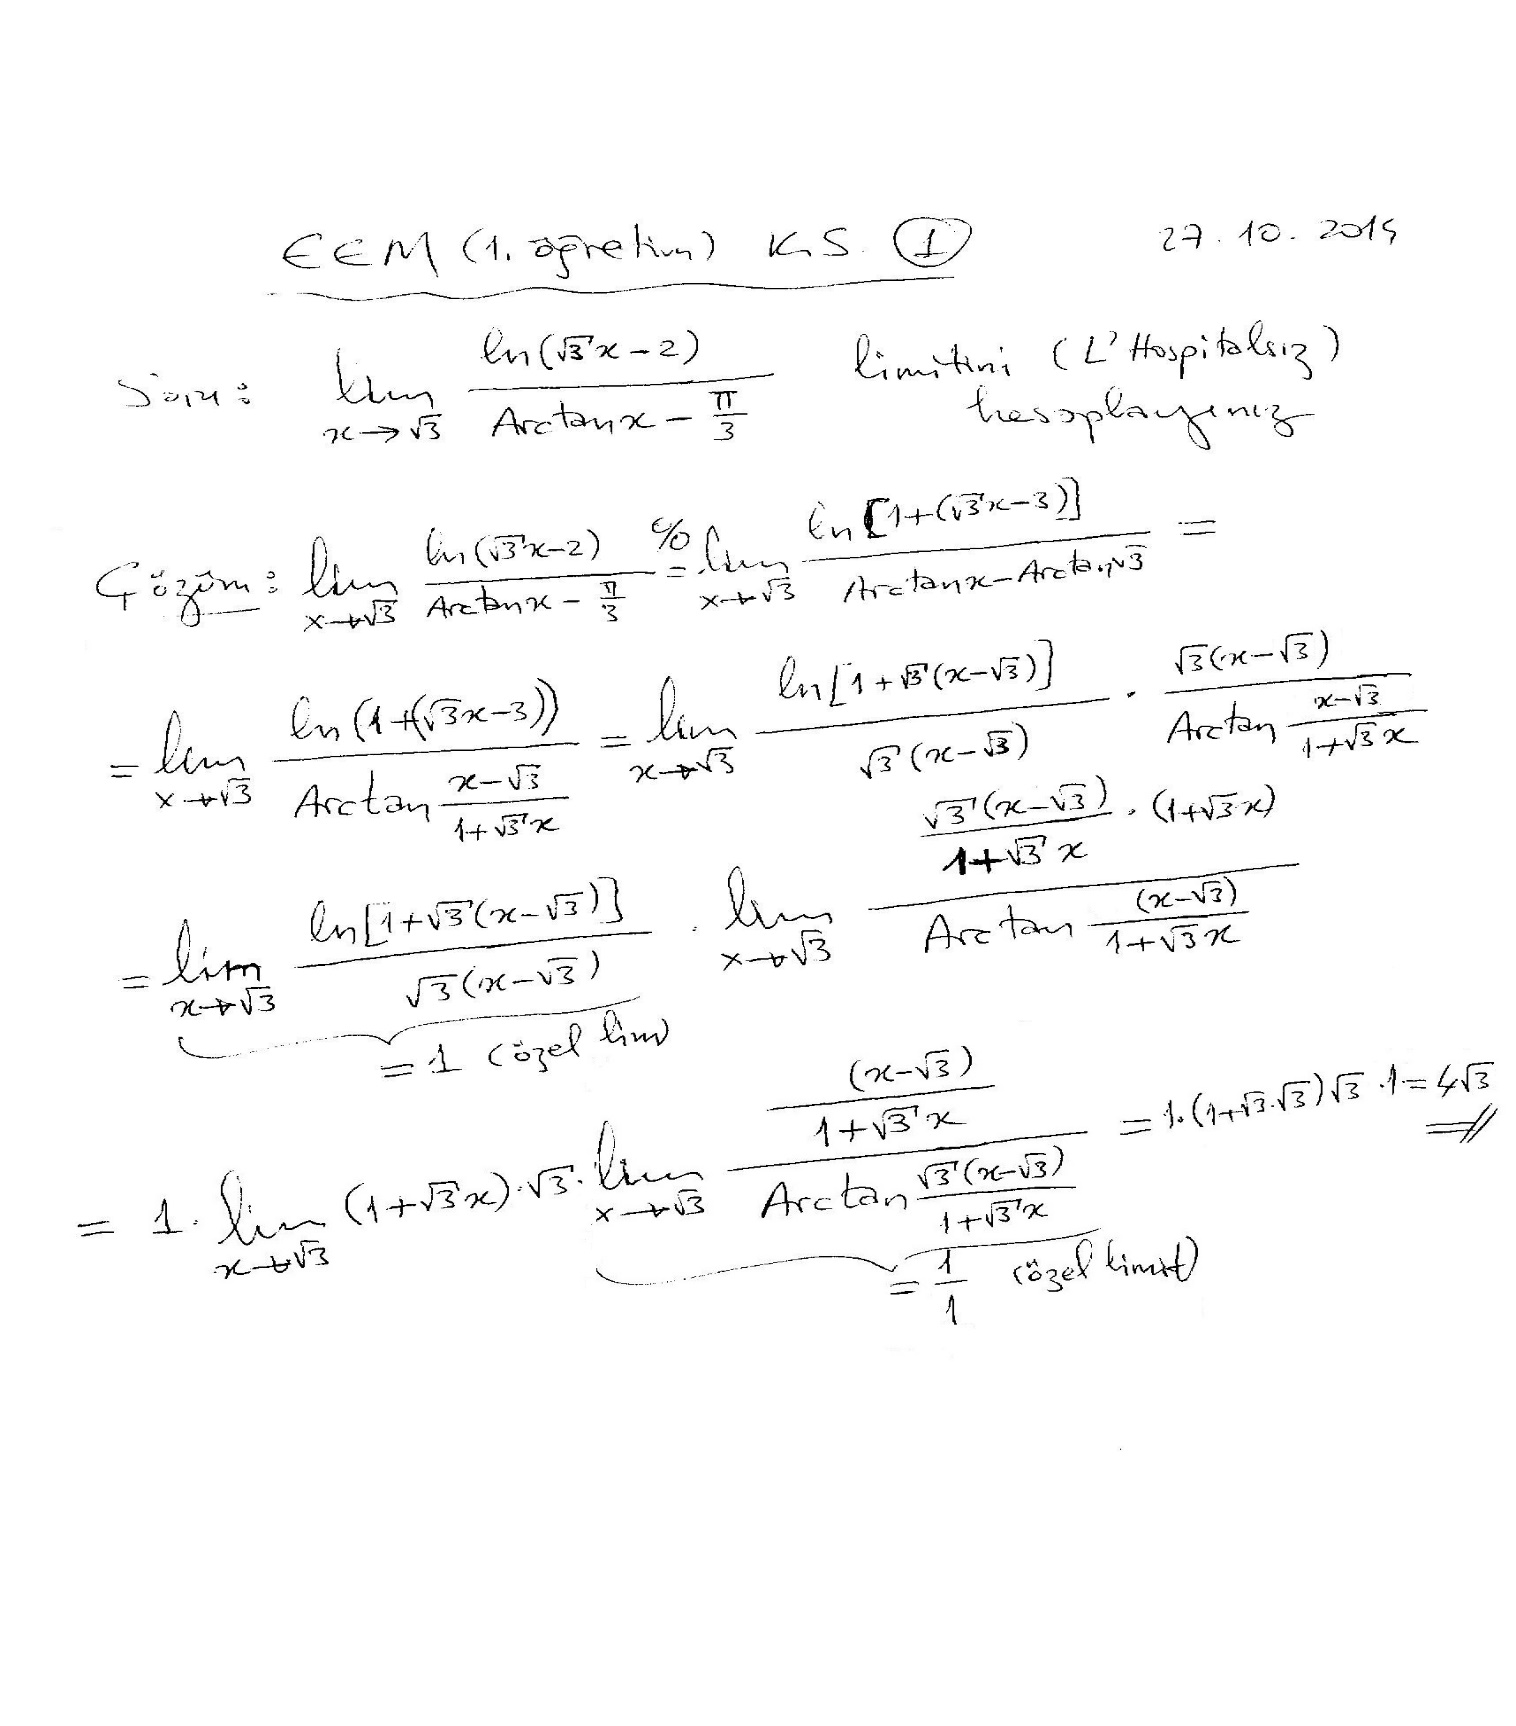 EEM (1. öğretim) KS. 1 27.10.2015
Soru: lim x→√3 ln(√3x-2) / (Arctanx - π/3) limitini (L'Hospitalsiz)
hesaplayınız
Çözüm: lim x→√3 ln(√3x-2) / (Arctanx - π/3) %= lim x→√3 ln[1+(√3x-3)] / (Arctanx-Arctan√3) =
= lim x→√3 ln(1+(√3x-3)) / (Arctan (x-√3)/(1+√3x)) = lim x→√3 ln[1+√3(x-√3)] / (√3(x-√3)) . √3(x-√3) / (Arctan (x-√3)/(1+√3x))
= lim x→√3 ln[1+√3(x-√3)] / (√3(x-√3)) . lim x→√3 (√3(x-√3)/(1+√3x) . (1+√3x)) / (Arctan (x-√3)/(1+√3x))
= 1 (özel lim)
= 1. lim x→√3 (1+√3x).√3. lim x→√3 ((x-√3)/(1+√3x)) / (Arctan √3(x-√3)/(1+√3x)) = 1.(1+√3.√3)√3.1 = 4√3
= 1/1 (özel limit)